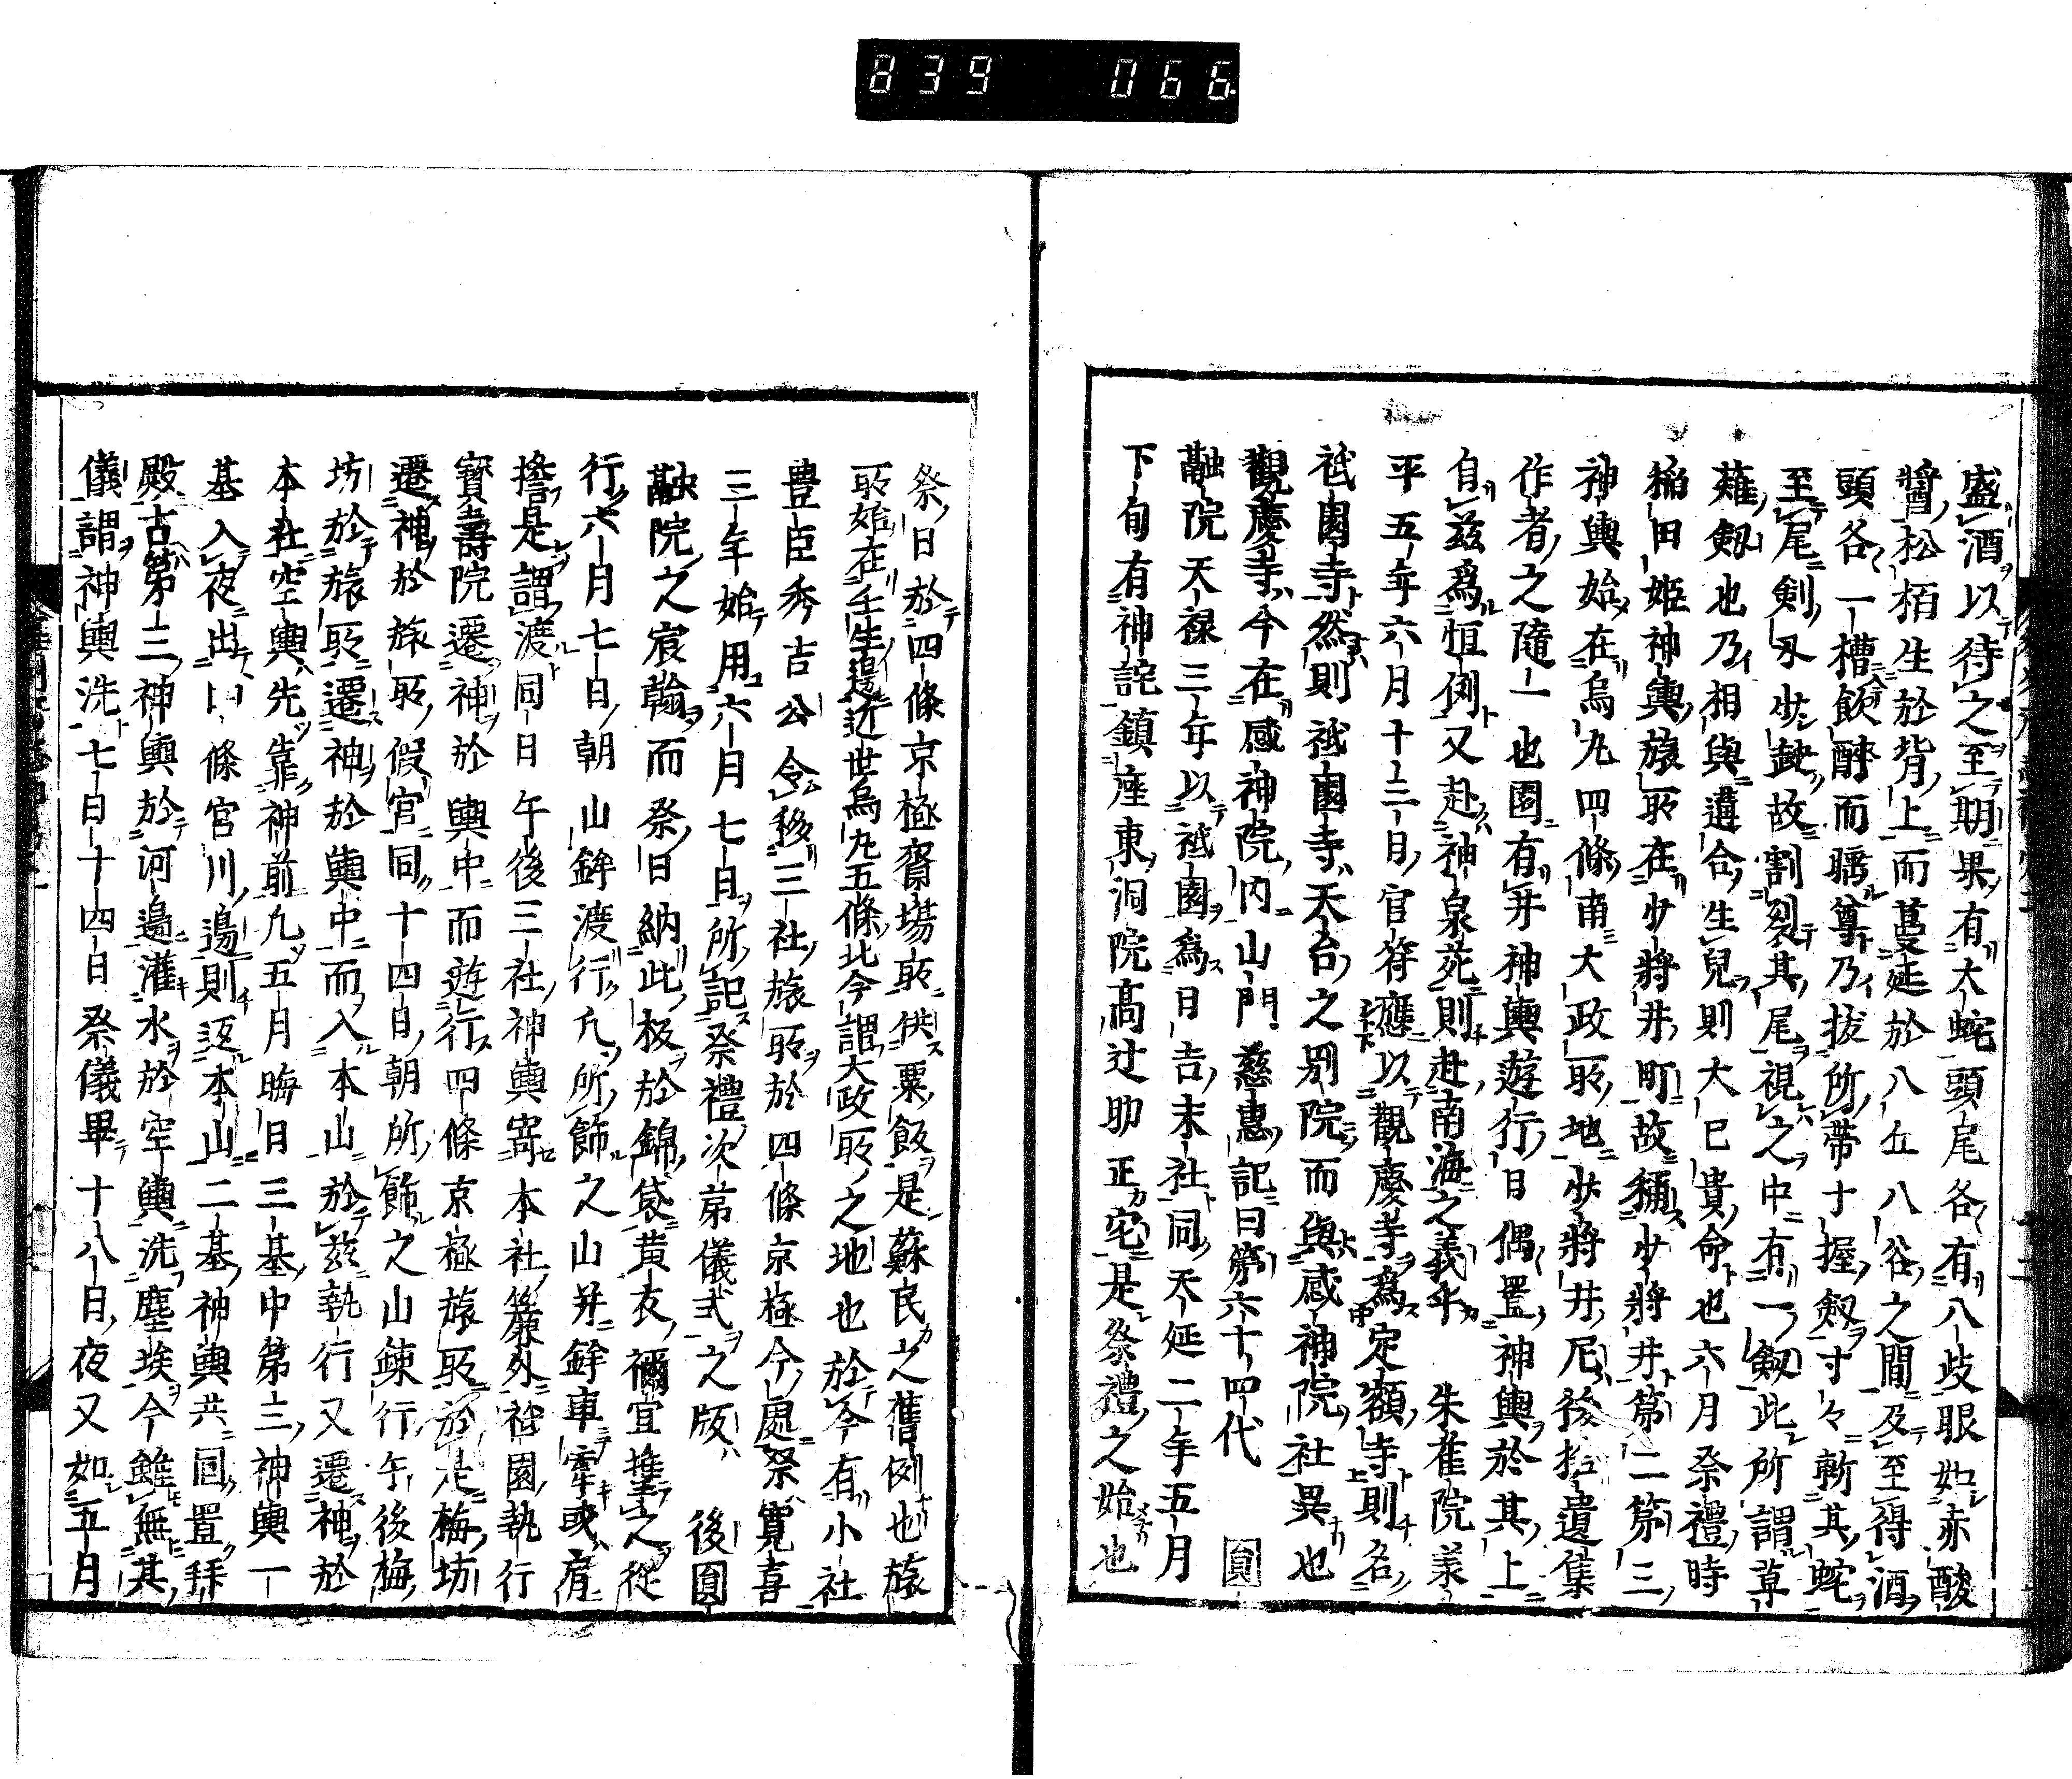 839 066
盛酒以待之至期果有大蛇頭尾各有八岐眼如赤酸
醬松栢生於背上而蔓延於八丘八谷之間及至得酒
頭各一槽飲醉而睡尊乃抜所帯十握劔寸々斬其蛇
至尾剣刄少缺故割裂其尾視之中有一劔此所謂草
薙劔也乃相與遘合生兒則大已貴命也六月祭禮時
稲田姫神輿旅所在少將井町故稱少將井第二第三
神輿始在烏丸四條南大政所地少將井尼後拾遺集
作者之隨一也園有井神輿遊行日偶置神輿於其上
自兹爲恒例又赴神泉苑則赴南海之義乎 朱雀院承
平五年六月十三日官符應以觀慶寺爲定額寺則名
祇園寺然則祇園寺天台之別院而與感神院社異也
觀慶寺今在感神院内山門慈惠記曰第六十四代 圓
融院天禄三年以祗園爲日吉末社同天延二年五月
下旬有神託鎮座東洞院高辻助正宅是祭禮之始也
祭日於四條京極齋場所供粟飯是蘇民之舊例也旅
所始在壬生邉近世烏丸五條北今謂大政所之地也於今有小社
豊臣秀吉公令移三社旅所於四條京極今處祭寛喜
三年始用六月七日所記祭禮次第儀式之版 後圓
融院之宸翰而祭日納此板於錦袋黄衣禰宜擁之從
行六月七日朝山鉾渡行凡所飾之山并鉾車牽或肩
擔是謂渡同日午後三社神輿寄本社簾外祇園執行
寳壽院遷神於輿中而遊行四條京極旅所於是梅坊
遷神於旅所假宮同十四日朝所飾之山錬行午後梅
坊於旅所遷神於輿中而入本山於兹執行又遷神於
本社空輿先靠神前凡五月晦日三基中第三神輿一
基入夜出四條宮川邉則返本山二基神輿共同置拜
殿古第三神輿於河邉灌水於空輿洗塵埃今雖無其
儀謂神輿洗七日十四日祭儀畢十八日夜又如五月